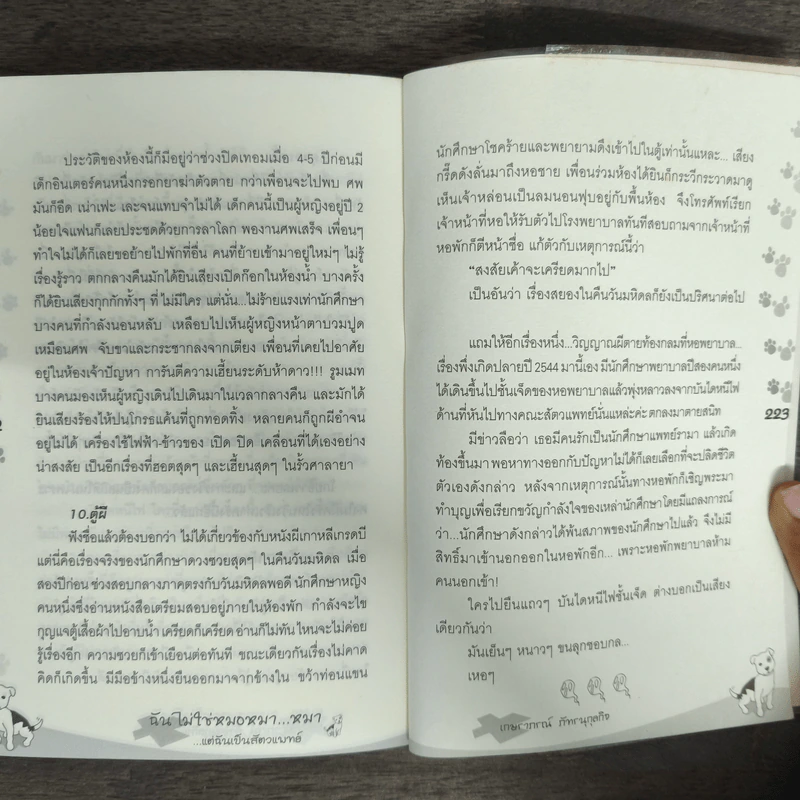 ประวัติของห้องนี้ก็มีอยู่ว่าช่วงปิดเทอมเมื่อ 4-5 ปีก่อนมี
เด็กอินเตอร์คนหนึ่งกรอกยาฆ่าตัวตาย กว่าเพื่อนจะไปพบ ศพ
มันก็อืด เน่าเฟะ เละจนแทบจำไม่ได้ เด็กคนนี้เป็นผู้หญิงอยู่ปี 2
น้อยใจแฟนก็เลยประชดด้วยการลาโลก พองานศพเสร็จ เพื่อนๆ
ทำใจไม่ได้ก็เลยขอย้ายไปพักที่อื่น คนที่ย้ายเข้ามาอยู่ใหม่ๆ ไม่รู้
เรื่องรู้ราว ตกกลางคืนมักได้ยินเสียงเปิดก๊อกในห้องน้ำ บางครั้ง
ก็ได้ยินเสียงกุกกักทั้งๆ ที่ไม่มีใคร แต่นั่น...ไม่ร้ายแรงเท่านักศึกษา
บางคนที่กำลังนอนหลับ เหลือบไปเห็นผู้หญิงหน้าตาบวมปูด
เหมือนศพ จับขาและกระชากลงจากเตียง เพื่อนที่เคยไปอาศัย
อยู่ในห้องเจ้าปัญหา การันตีความเฮี้ยนระดับห้าดาว!!! รูมเมท
บางคนมองเห็นผู้หญิงเดินไปเดินมาในเวลากลางคืน และมักได้
ยินเสียงร้องไห้ปนโกรธแค้นที่ถูกทอดทิ้ง หลายคนก็ถูกผีอำจน
อยู่ไม่ได้ เครื่องใช้ไฟฟ้า-ข้าวของ เปิด ปิด เคลื่อนที่ได้เองอย่าง
น่าสงสัย เป็นอีกเรื่องที่ฮอตสุดๆ และเฮี้ยนสุดๆ ในรั้วศาลายา
10.ตู้ผี
ฟังชื่อแล้วต้องบอกว่า ไม่ได้เกี่ยวข้องกับหนังผีเกาหลีเกรดบี
แต่นี่คือเรื่องจริงของนักศึกษาดวงซวยสุดๆ ในคืนวันมหิดล เมื่อ
สองปีก่อน ช่วงสอบกลางภาคตรงกับวันมหิดลพอดี นักศึกษาหญิง
คนหนึ่งซึ่งอ่านหนังสือเตรียมสอบอยู่ภายในห้องพัก กำลังจะไข
กุญแจตู้เสื้อผ้าไปอาบน้ำ เครียดก็เครียด อ่านก็ไม่ทัน ไหนจะไม่ค่อย
รู้เรื่องอีก ความซวยก็เข้าเยือนต่อทันที ขณะเดียวกันเรื่องไม่คาด
คิดก็เกิดขึ้น มีมือข้างหนึ่งยืนออกมาจากข้างใน ขว้าท่อนแขน
ฉันไม่ใช่หมอหมา...หมา
...แต่ฉันเป็นสัตวแพทย์
นักศึกษาโชคร้ายและพยายามดึงเข้าไปในตู้เท่านั้นแหละ... เสียง
กรี๊ดดังลั่นมาถึงหอชาย เพื่อนร่วมห้องได้ยินก็กระวีกระวาดมาดู
เห็นเจ้าหล่อนเป็นลมนอนฟุบอยู่กับพื้นห้อง จึงโทรศัพท์เรียก
เจ้าหน้าที่หอให้รับตัวไปโรงพยาบาลทันทีสอบถามจากเจ้าหน้าที่
หอพักก็ตีหน้าซื่อ แก้ตัวกับเหตุการณ์นี้ว่า
“สงสัยเค้าจะเครียดมากไป”
เป็นอันว่า เรื่องสยองในคืนวันมหิดลก็ยังเป็นปริศนาต่อไป
แถมให้อีกเรื่องหนึ่ง...วิญญาณผีตายท้องกลมที่หอพยาบาล...
เรื่องพึ่งเกิดปลายปี 2544 มานี้เอง มีนักศึกษาพยาบาลปีสองคนหนึ่ง
ได้เดินขึ้นไปชั้นเจ็ดของหอพยาบาลแล้วพุ่งหลาวลงจากบันไดหนีไฟ
ด้านที่หันไปทางคณะสัตวแพทย์นั่นแหละค่ะ ตกลงมาตายสนิท
223
มีข่าวลือว่า เธอมีคนรักเป็นนักศึกษาแพทย์รามา แล้วเกิด
ท้องขึ้นมา พอหาทางออกกับปัญหาไม่ได้ก็เลยเลือกที่จะปลิดชีวิต
ตัวเองดังกล่าว หลังจากเหตุการณ์นั้นทางหอพักก็เชิญพระมา
ทำบุญเพื่อเรียกขวัญกำลังใจของเหล่านักศึกษาโดยมีแถลงการณ์
ว่า...นักศึกษาดังกล่าวได้พ้นสภาพของนักศึกษาไปแล้ว จึงไม่มี
สิทธิ์มาเข้านอกออกในหอพักอีก... เพราะหอพักพยาบาลห้าม
คนนอกเข้า!
ใครไปยืนแถวๆ บันไดหนีไฟชั้นเจ็ด ต่างบอกเป็นเสียง
เดียวกันว่า
มันเย็นๆ หนาวๆ ขนลุกชอบกล...
เหอๆ
เกษราภรณ์ ภัทรนุกุลกิจ